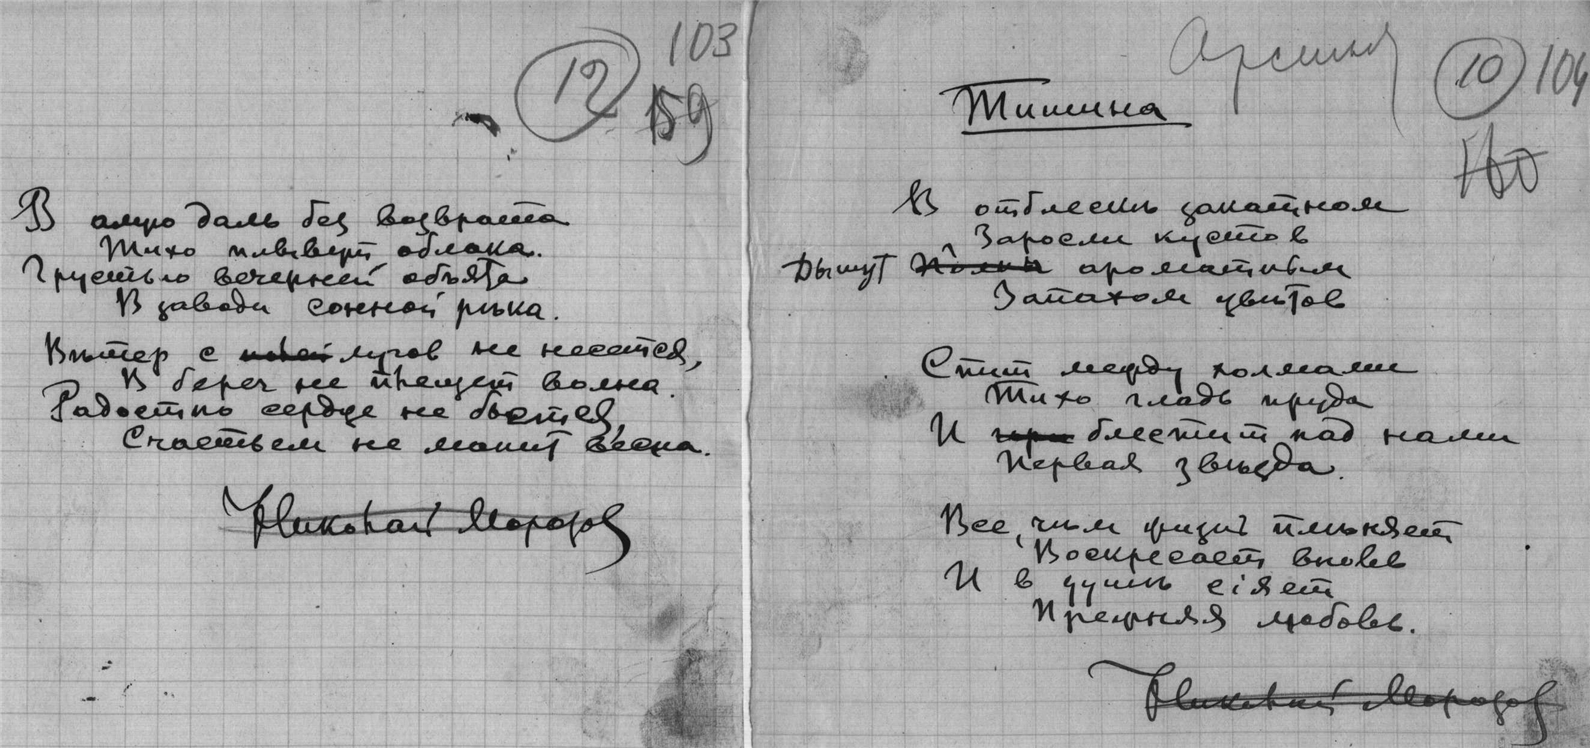 103
12
59
В алую даль без возврата
Тихо плывут облака.
Грустью вечерней объята
В заводи сонной рѣка.
Вѣтер с лугов не несется,
В берег не плещет волна.
Радостно сердце не бьется,
Счастьем не манит весна.
Николай Морозов
10
104
160
Тишина
В отблескѣ закатном
Заросли кустов
Дышут ароматным
Запахом цвѣтов
Спит между холмами
Тихо гладь пруда
И блестит над нами
Первая звѣзда.
Все, чѣм жизнь плѣняет
Воскресает вновь
И в душѣ сіяет
Прежняя любовь.
Николай Морозов